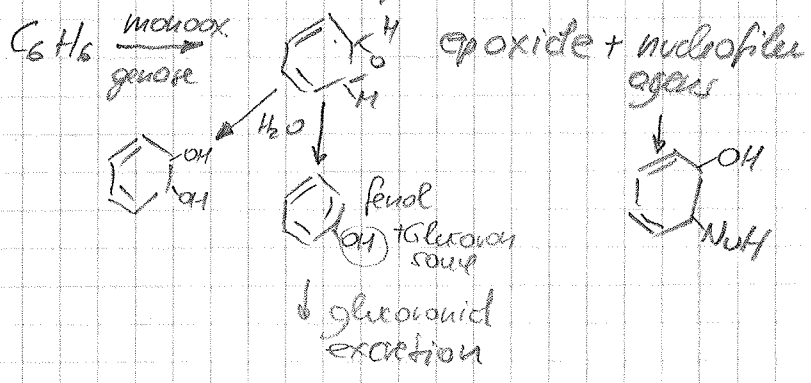 C6H6 monoox. genase
H
O
H
epoxide + nucleofiler
agens
H2O
OH
OH
fenol
OH + Glucuron
säure
↓ glucoronid
excretion
OH
NuH